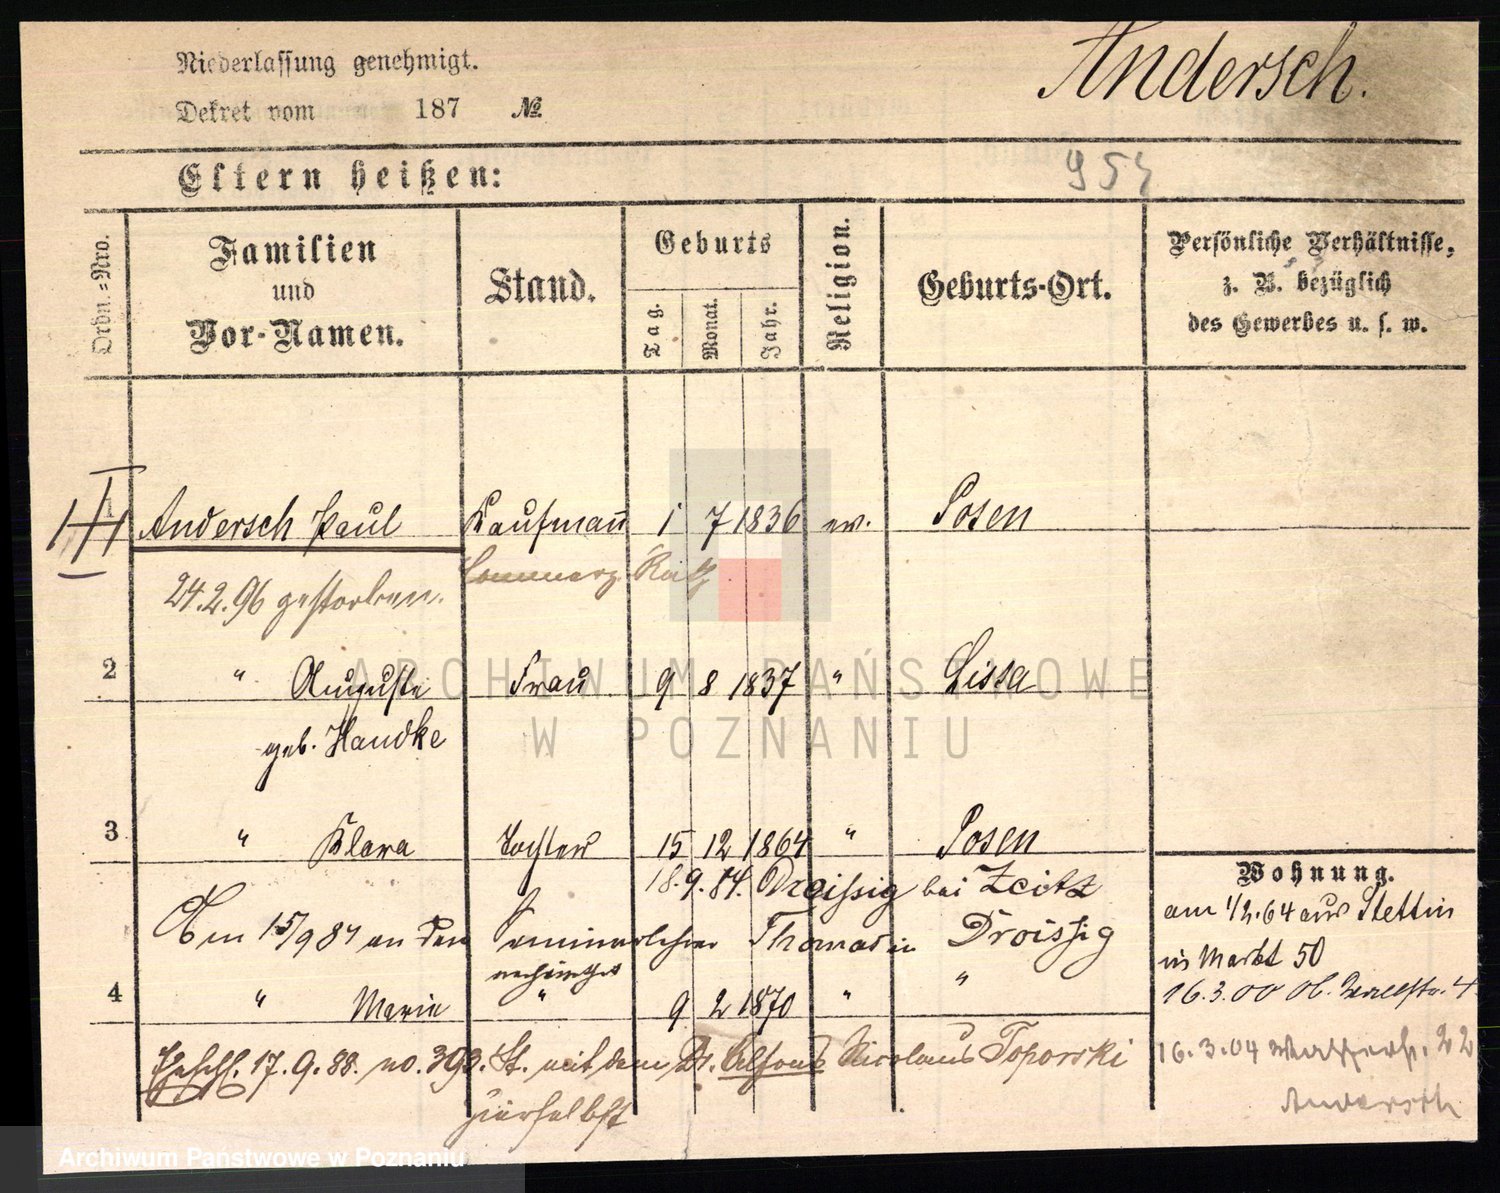 Niederlassung genehmigt.
Andersch.
Dekret vom 187 №
Eltern heißen:
954
Ordn.=Nro.
Familien
und
Vor-Namen.
Stand.
Geburts
Tag.
Monat.
Jahr.
Religion.
Geburts-Ort.
Persönliche Verhältnisse,
z. B. bezüglich
des Gewerbes u. s. w.
1 Andersch Paul Kaufmann 1 7 1836 ev. Posen
Commerz. Rath
24.2.96 gestorben.
2 " Auguste Frau 9 8 1837 " Lissa
geb. Handke
3 " Klara Tochter 15 12 1864 " Posen
18.9.84. Droissig bei Zeitz
Am 15/9 84 an den Seminarlehrer Thomas in Droissig
verheirathet
4 " Marie " 9 2 1870 " "
Eheschl. 17.9.88. no. 393. St. mit dem Dr. Alfons Nicolaus Toporski
hierselbst
Wohnung.
am 1/2.64 aus Stettin
in Markt 50
16.3.00 Ob. Wallstr. 4
16.3.04 22
Andersch
ARCHIWUM PAŃSTWOWE
W POZNANIU
Archiwum Państwowe w Poznaniu